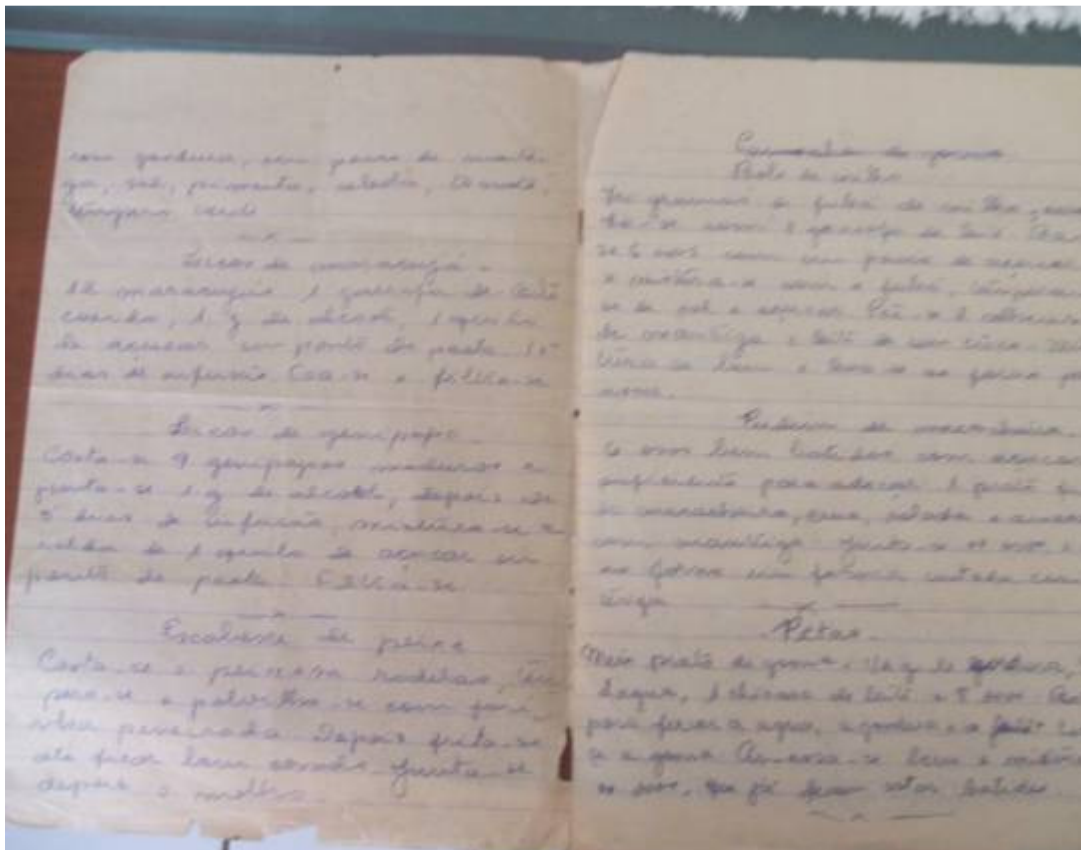 com gordura, um pouco de mantei-
ga, sal, pimenta, cebola, tomate,
tempero verde
Licor de maracujá -
12 maracujás 1 garrafa de leite
1 g de alcool, 1 quilo
de açucar em ponto de pasta 10
dias de infusão Coa-se e filtra-se
Licor de genipapo
Corta-se 9 genipapos maduros e
junta-se 1 g de alcool, depois de
5 dias de infusão, mistura-se a
calda de 1 quilo de açucar em
ponto de pasta. Filtra-se.
Escabeche de peixe
Corta-se o peixe em rodelas, tem
pera-se e polvilha-se com fari
nha peneirada Depois frita-se
até ficar bem corado Junta-se
depois o molho.
Bolo de milho
gramas de fubá de milho,
com 1 garrafa de leite
se 6 ovos com um pouco de açucar
e mistura-se com o fubá, tempera
se de sal e açucar Põe-se 1
de manteiga e leite de um côco
se bem e leva-se ao forno
Pudim de macacheira
6 ovos bem batidos com açucar
suficiente para adoçar 1 prato
de macacheira, crua, ralada e
com manteiga Junta-se os ovos e
ao forno em forma untada com
teiga
Petas
Meio prato de goma. de gordura,
dagua, 1 chicara de leite e 8 ovos
para ferver a agua, a gordura e o leite
se a goma Amassa-se bem e
os ovos, que já devem estar batidos